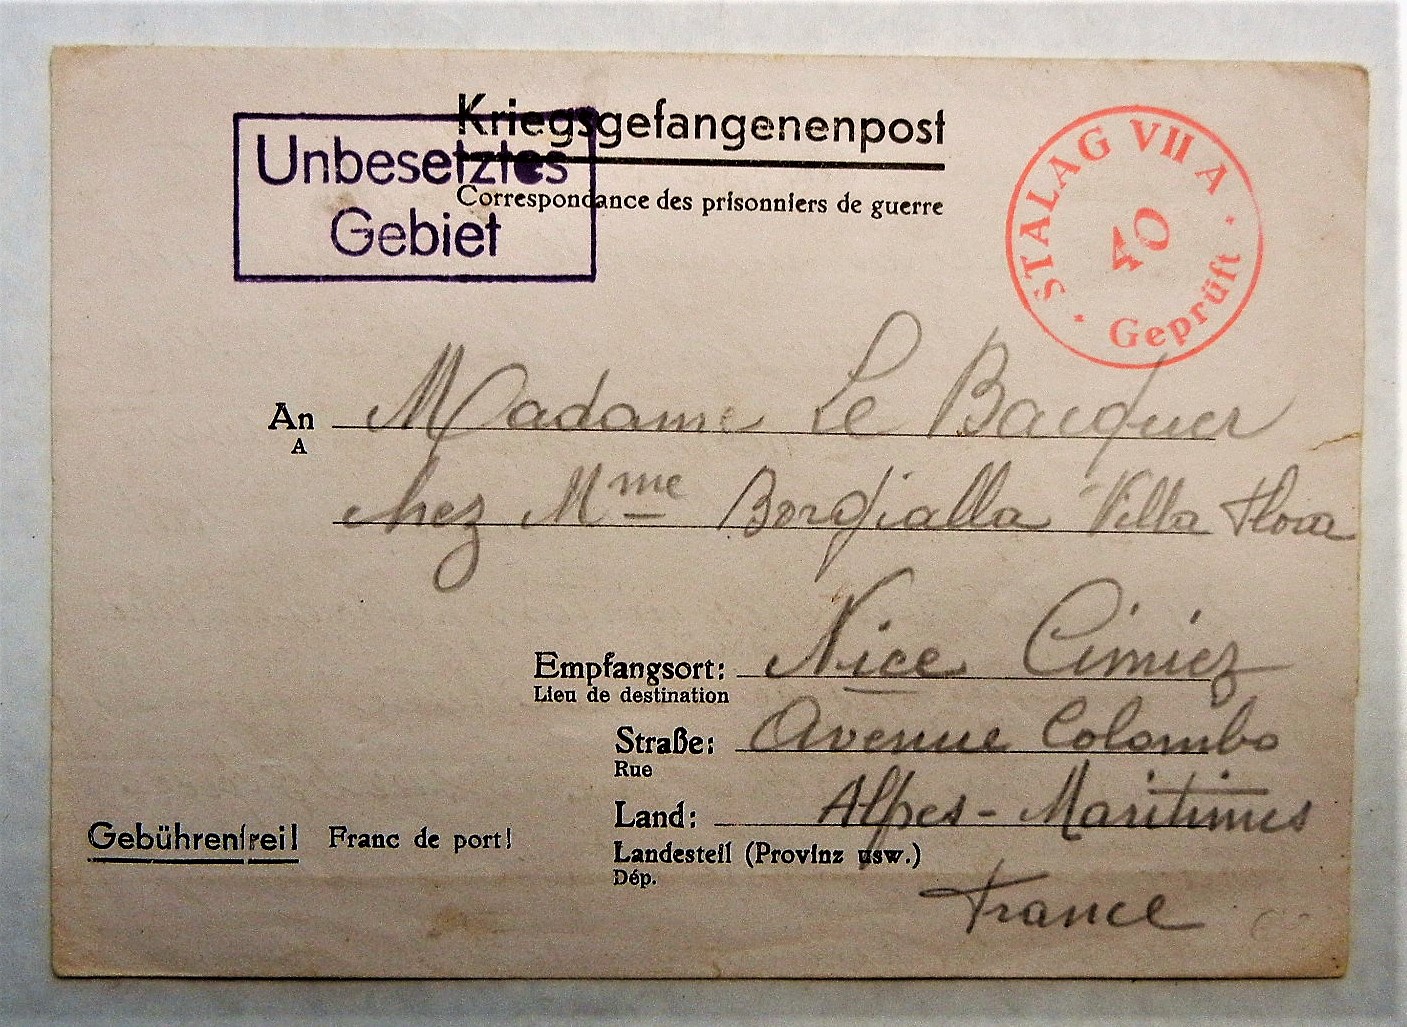 Kriegsgefangenenpost
Correspondance des prisonniers de guerre
Unbesetztes
Gebiet
STALAG VII A
40
Geprüft
An Madame Le Bacquer
A
chez Mme Bordialla Villa Flora
Empfangsort: Nice Cimiez
Lieu de destination
Straße: Avenue Colombo
Rue
Land: Alpes-Maritimes
Landesteil (Provinz usw.)
Dép.
France
Gebührenfrei! Franc de port!